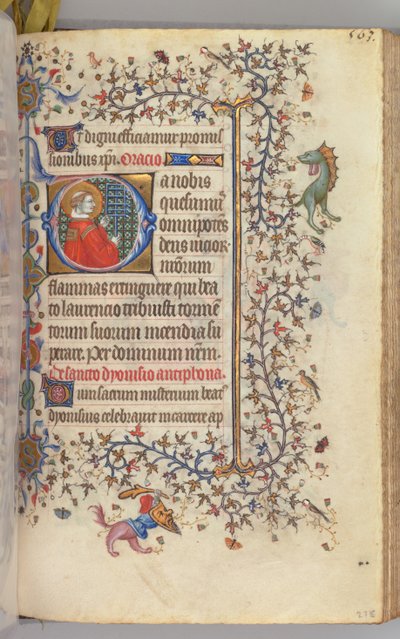 567.
Ut digni efficiamur promis
sionibus xpi. Oracio
Da nobis
quesumus
omnipotens
deus vicior
nostrorum
flammas extinguere qui bea
to laurencio tribuisti tormen
torum suorum incendia su
perare. Per dominum nrm.
De sancto dyonisio antiphona.
Cum sacrum misterium beat
dyonisius celebraret in carcere ap
278